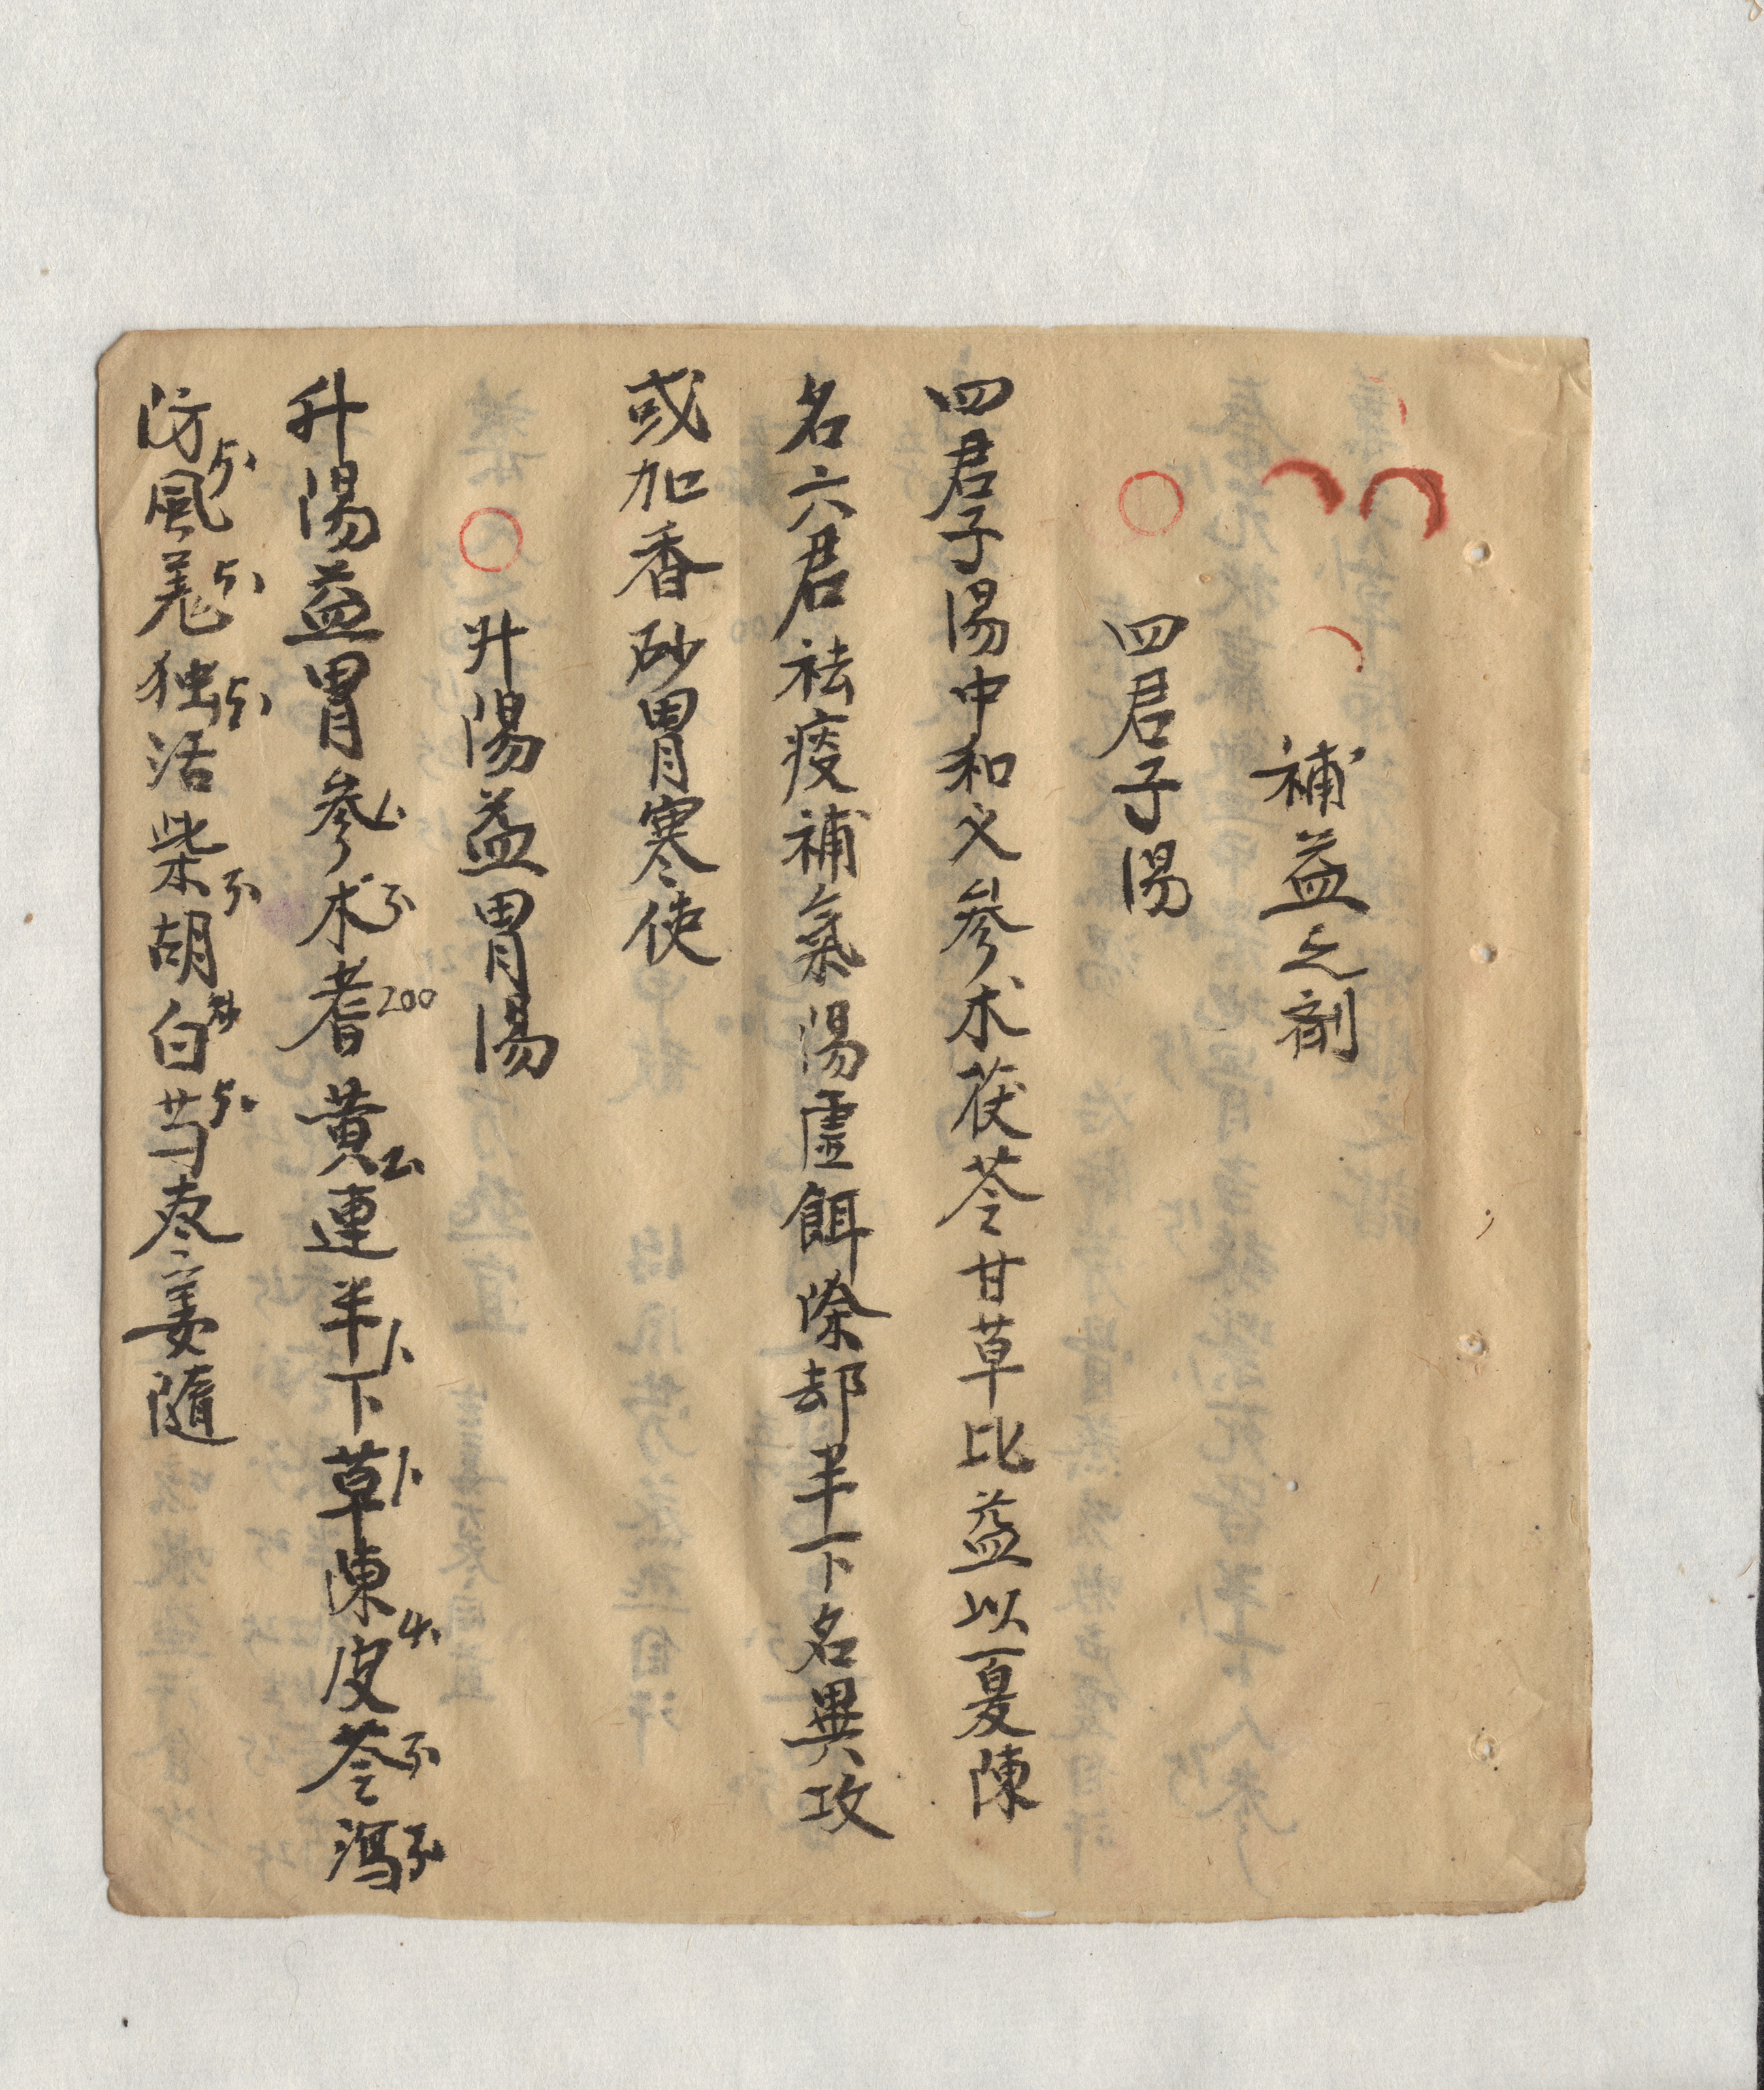 補益之剤
四君子湯
四君子湯中和义参术茯苓甘草比益以夏陳
名六君祛痰補氣陽虛餌除却半下名異攻
或加香砂胃寒使
升陽益胃湯
升陽益胃参术耆200黄連半下草陳皮苓瀉
防風羗独活柴胡白芍枣姜隨